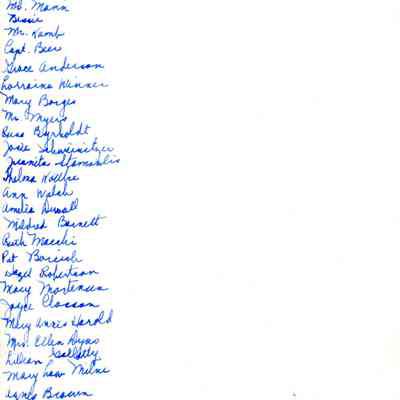 Mann
Bessie
Mr. Kamb
Capt. Beer
Grace Anderson
Lorraine Winner
Mary Borges
Mr. Myers
Jode Schweinitzer
Juanita Stamoulis
Thelma
Ann Walsh
Amelia Duvall
Mildred Barnett
Ruth Macchi
Pat Borsich
Hazel Robertson
Mary Mortensen
Joyce Closson
Mary Anris Harold
Mrs. Ellen Dyas
Lillian Gollatly
Mary Lou Milne
Agnes Brown